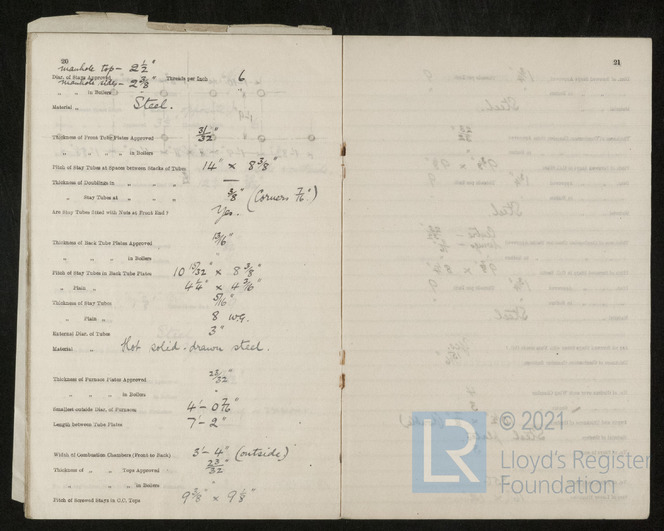 20
manhole top - 2 1/2"
Diar. of Stays Approved Threads per Inch 6
manhole sides - 2 3/8"
„ „ in Boilers
Material „ Steel.
Thickness of Front Tube Plates Approved 31/32"
„ „ „ „ in Boilers "
Pitch of Stay Tubes at Spaces between Stacks of Tubes 14" × 8 3/8"
Thickness of Doublings in „ „ —
„ Stay Tubes at „ „ 3/8" (Corners 7/16")
Are Stay Tubes fitted with Nuts at Front End? Yes.
Thickness of Back Tube Plates Approved 13/16"
„ „ „ „ in Boilers "
Pitch of Stay Tubes in Back Tube Plates 10 15/32" × 8 3/8"
„ Plain „ 4 1/4" × 4 3/16"
Thickness of Stay Tubes 5/16"
„ Plain „ 8 W.G.
External Diar. of Tubes 3"
Material „ Hot solid-drawn steel.
Thickness of Furnace Plates Approved 23/32"
„ „ „ in Boilers "
Smallest outside Diar. of Furnaces 4'- 0 7/16"
Length between Tube Plates 7'- 2"
Width of Combustion Chambers (Front to Back) 3'- 4" (outside)
Thickness of „ „ Tops Approved 23/32"
„ „ „ „ in Boilers "
Pitch of Screwed Stays in C.C. Tops 9 3/8" × 9 1/8"
21
LR
© 2021
Lloyd's Register
Foundation